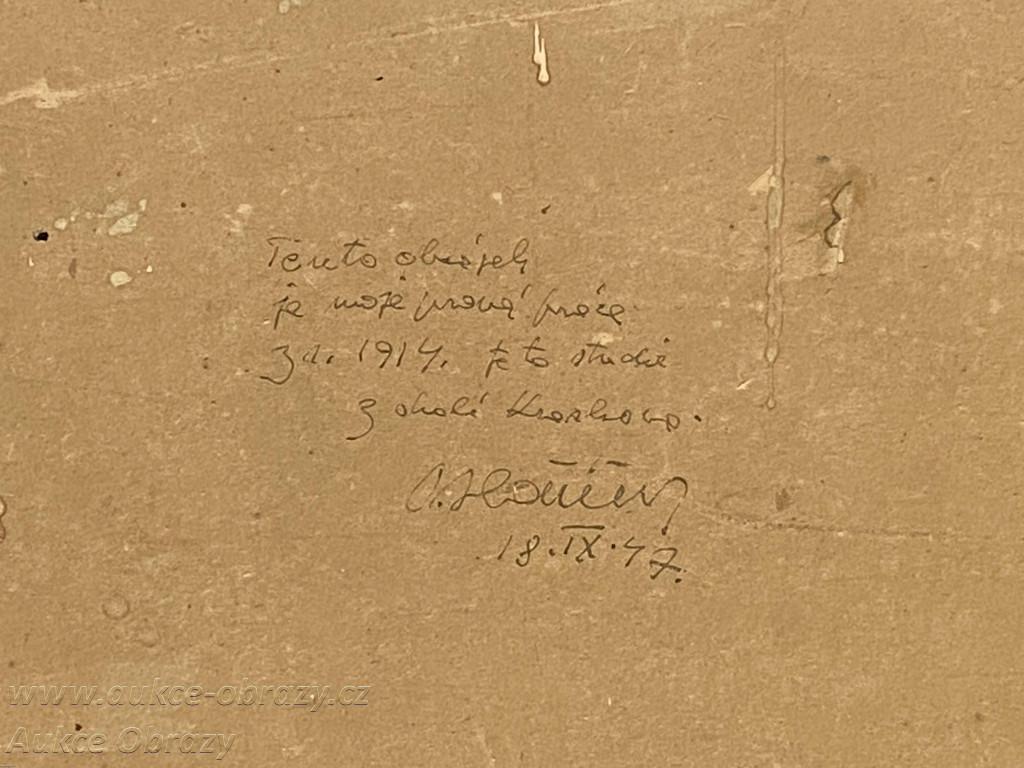 Tento obrázek
je moje prvná práce
z r. 1914. je to studie
z okolí Kraskova.
18.IX.47.
www.aukce-obrazy.cz
Aukce Obrazy